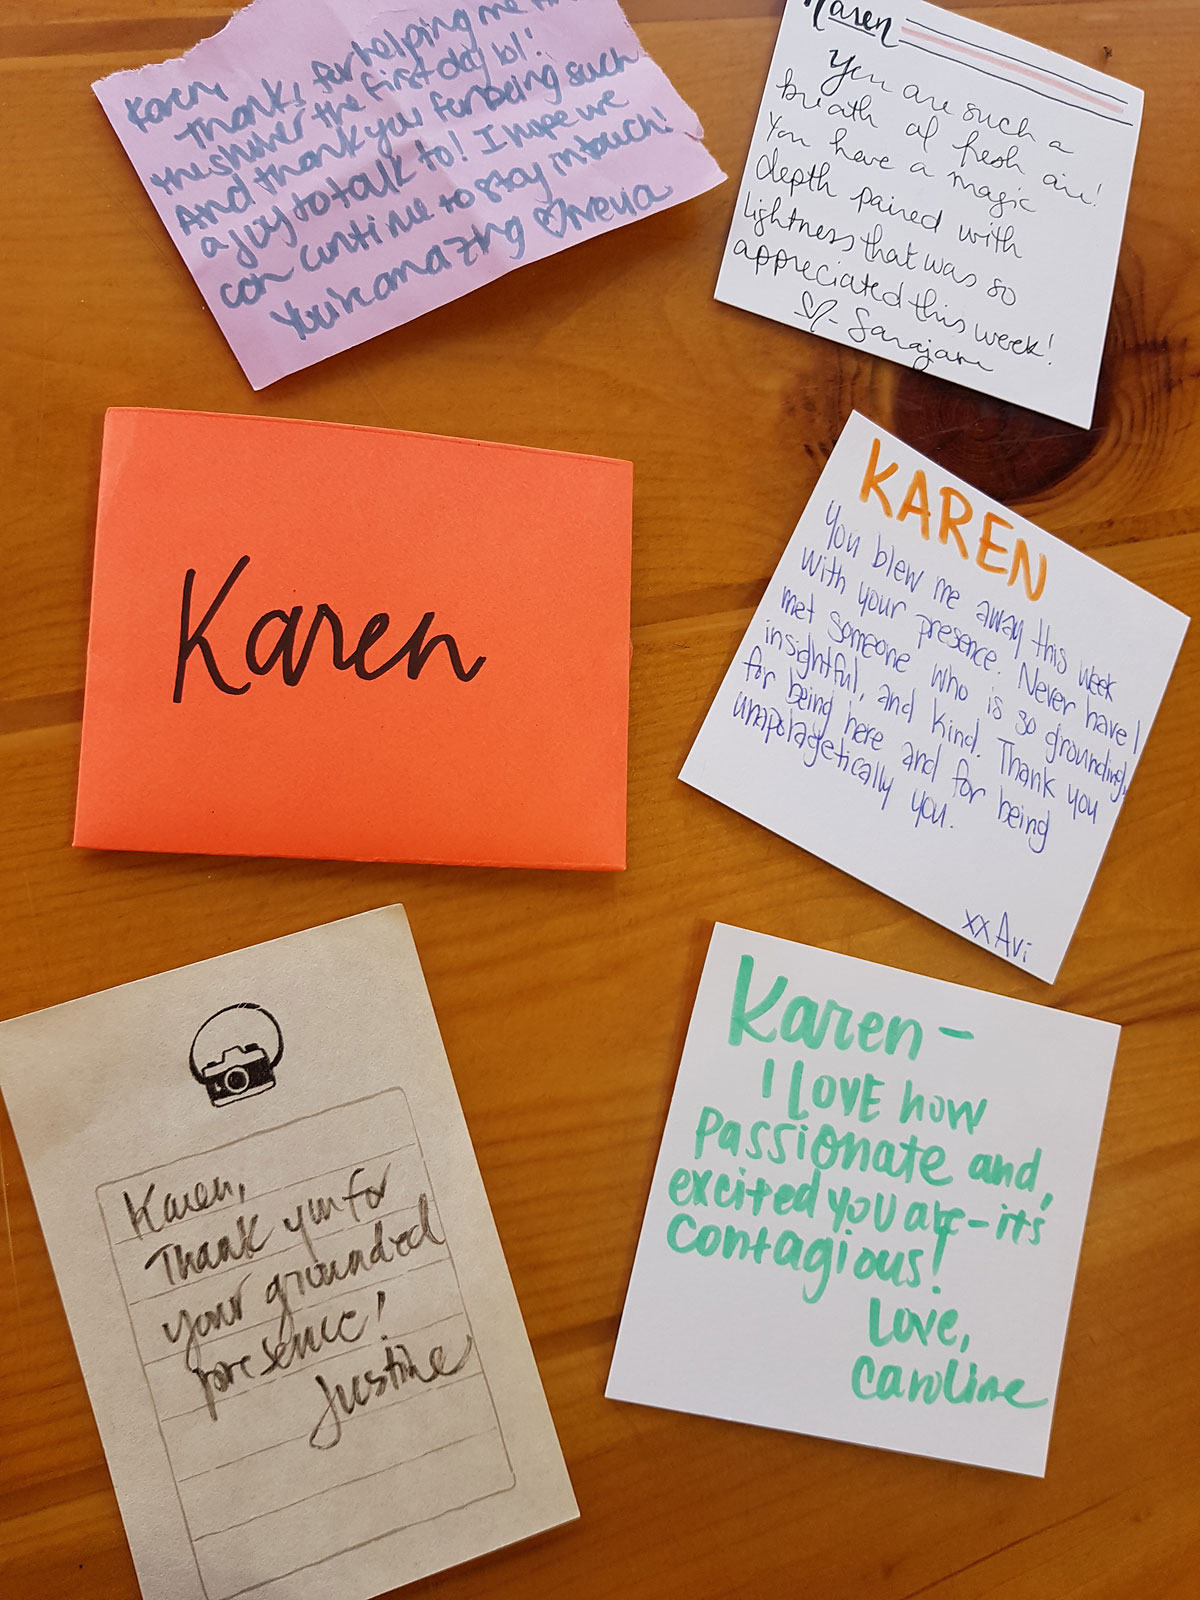 Karen,
Thanks for helping me find
the shower the first day lol!
And thank you for being such
a joy to talk to! I hope we
can continue to stay in touch!
You're amazing
Karen
You are such a
breath of fresh air!
You have a magic
depth paired with
lightness that was so
appreciated this week!
- Sarajane
Karen
KAREN
You blew me away this week
with your presence. Never have I
met someone who is so grounding,
insightful, and kind. Thank you
for being here and for being
unapolagetically you.
xx Avi
Karen,
Thank you for
your grounded
presence!
Justine
Karen –
I LOVE how
passionate and
excited you are – it's
contagious!
Love,
Caroline